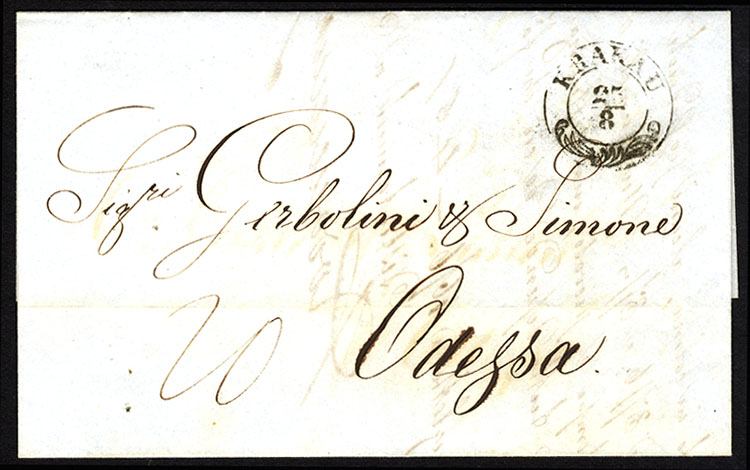 KRAKAU
25
8
Sigri Gerbolini & Simone
20
Odessa.